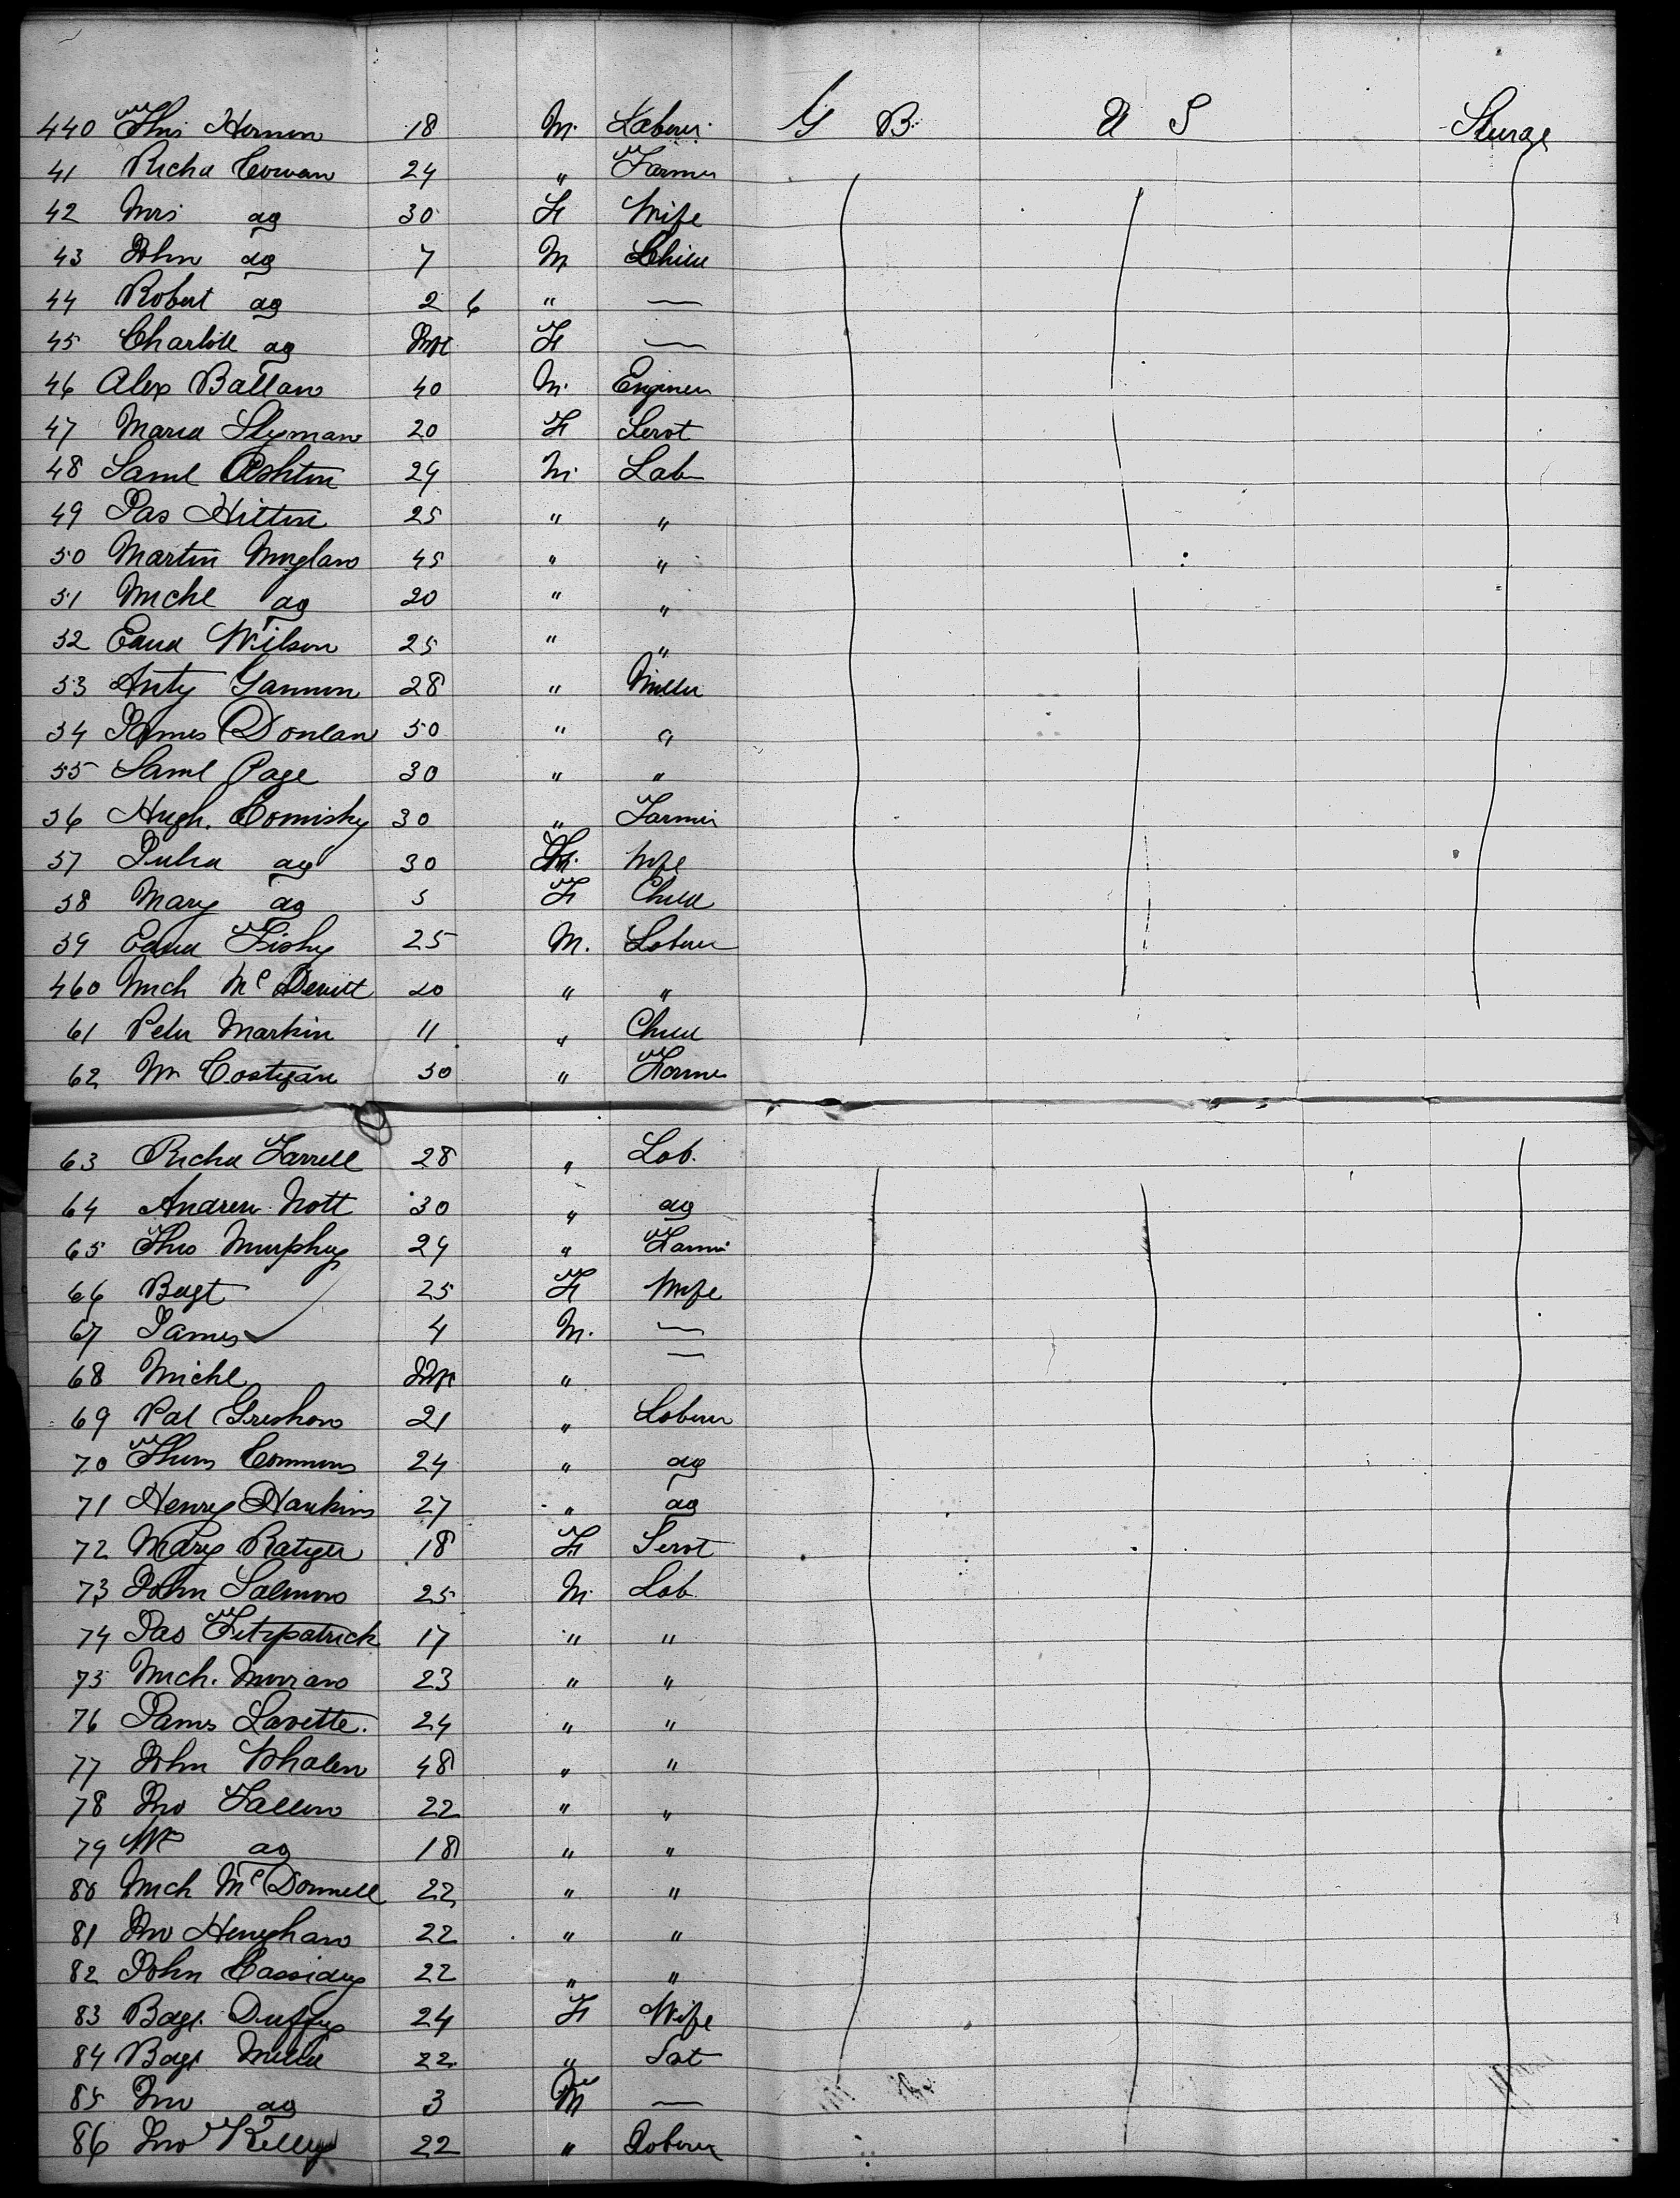 440 Thos Hernon 18 M. Laborer G B U S Steerage
41 Richd Cowan 24 " Farmer
42 Mrs do 30 F Wife
43 John do 7 M Child
44 Robert do 2 6 " —
45 Charlotte do Inft F —
46 Alex Ballan 40 M. Engineer
47 Maria Slyman 20 F Servt
48 Saml Ashton 29 M. Lab
49 Jas Hilton 25 " "
50 Martin 45 " "
51 Michl do 20 " "
52 Edwd Wilson 25 " "
53 Anty Gannon 28 " Miller
54 James Donlan 50 " "
55 Saml Page 30 " "
56 Hugh. Comisky 30 " Farmer
57 Julia do 30 Wife
58 Mary do 5 F Child
59 Edwd 25 M. Laborer
460 Mich McDevitt 20 " "
61 Peter Markin 11 " Child
62 Wm Costigan 30 " Farmer
63 Richd Farrell 28 " Lab.
64 Andrew Nott 30 " do
65 Thos Murphy 29 " Farmer
66 Bdgt 25 F Wife
67 James 4 M. —
68 Michl Inft " —
69 Pat 21 " Laborer
70 Thos Commons 24 " do
71 Henry Hankins 27 " do
72 Mary 18 F Servt
73 John Salmon 25 M. Lab
74 Jas Fitzpatrick 17 " "
75 Mich. 23 " "
76 James Lavette. 24 " "
77 John Whalen 48 " "
78 Jno Fallon 22 " "
79 Wm do 18 " "
80 Mich McDonnell 22 " "
81 Jno Heneghan 22 " "
82 John Cassidy 22 " "
83 Bdgt. Duffy 24 F Wife
84 Bdgt 22 "
85 Jno do 3 M —
86 Jno Kelly 22 " Laborer